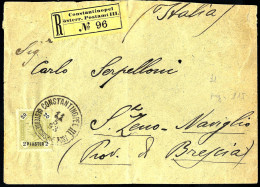 Constantinopel
österr. Postamt III.
R
No 96
(Italia)
Sig.
Carlo Serpelloni
S. Zeno-Naviglio
(Prov. di Brescia)
CONSTANTINOPEL
2 PIASTER 2